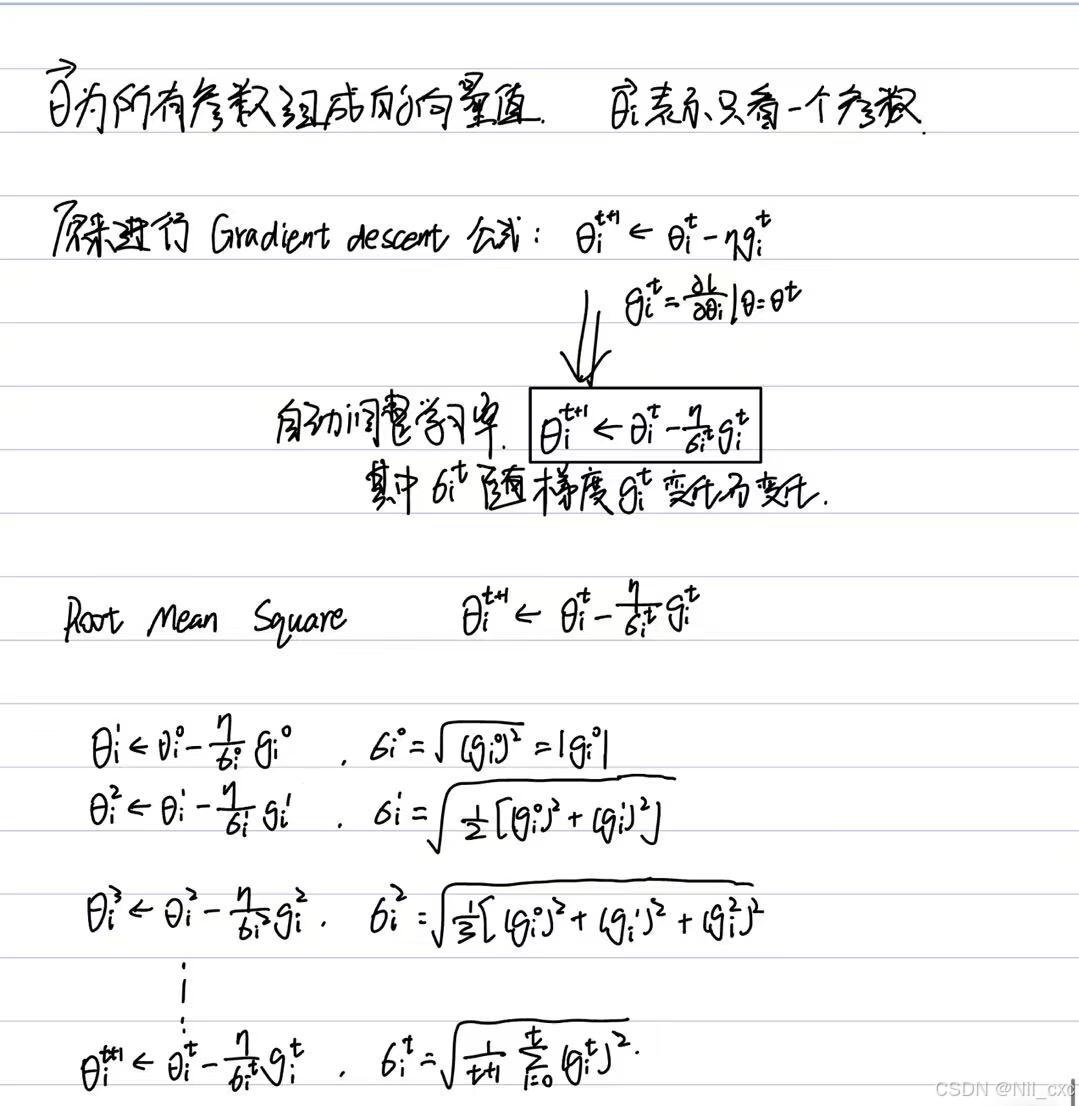 θ⃗为所有参数组成的向量值. θ⃗ᵢ表示只看一个参数.
原来进行 Gradient descent 公式: θᵢᵗ⁺¹ ← θᵢᵗ - ηgᵢᵗ
gᵢᵗ = ∂L/∂θᵢ |θ=θᵗ
自动调整学习率. θᵢᵗ⁺¹ ← θᵢᵗ - η/σᵢᵗ gᵢᵗ
其中 σᵢᵗ 随梯度 gᵢᵗ 变化而变化.
Root Mean Square θᵢᵗ⁺¹ ← θᵢᵗ - η/σᵢᵗ gᵢᵗ
θᵢ¹ ← θᵢ⁰ - η/σᵢ⁰ gᵢ⁰ . σᵢ⁰ = √(gᵢ⁰)² = |gᵢ⁰|
θᵢ² ← θᵢ¹ - η/σᵢ¹ gᵢ¹ . σᵢ¹ = √1/2[(gᵢ⁰)² + (gᵢ¹)²]
θᵢ³ ← θᵢ² - η/σᵢ² gᵢ² . σᵢ² = √1/3[(gᵢ⁰)² + (gᵢ¹)² + (gᵢ²)²
⋮
θᵢᵗ⁺¹ ← θᵢᵗ - η/σᵢᵗ gᵢᵗ . σᵢᵗ = √1/(t+1) ∑ᵢ₌₀ᵗ (gᵢᵗ)².
CSDN @Nil_cxc